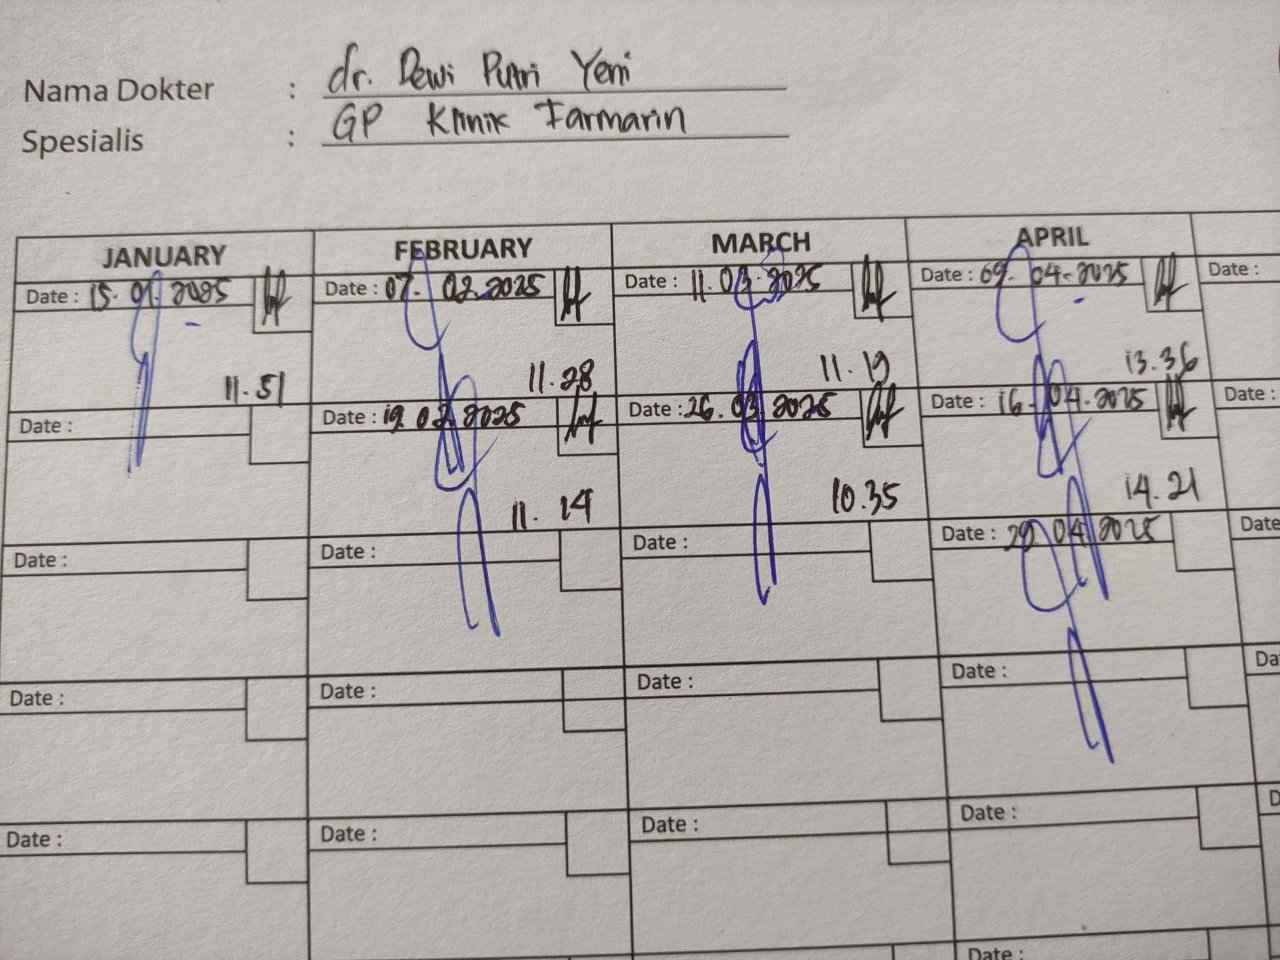 Nama Dokter : dr. Dewi Putri Yeni
Spesialis : GP Klinik Farmarin
JANUARY FEBRUARY MARCH APRIL
Date : 15.01.2025 Date : 07.02.2025 Date : 11.03.2025 Date : 09.04.2025 Date :
11.51 11.28 11.19 13.36
Date : Date : 19.02.2025 Date : 26.03.2025 Date : 16.04.2025 Date :
11.14 10.35 14.21
Date : Date : Date : Date : 29.04.2025 Date
Date : Date : Date : Date : Da
Date : Date : Date : Date : D
Date :